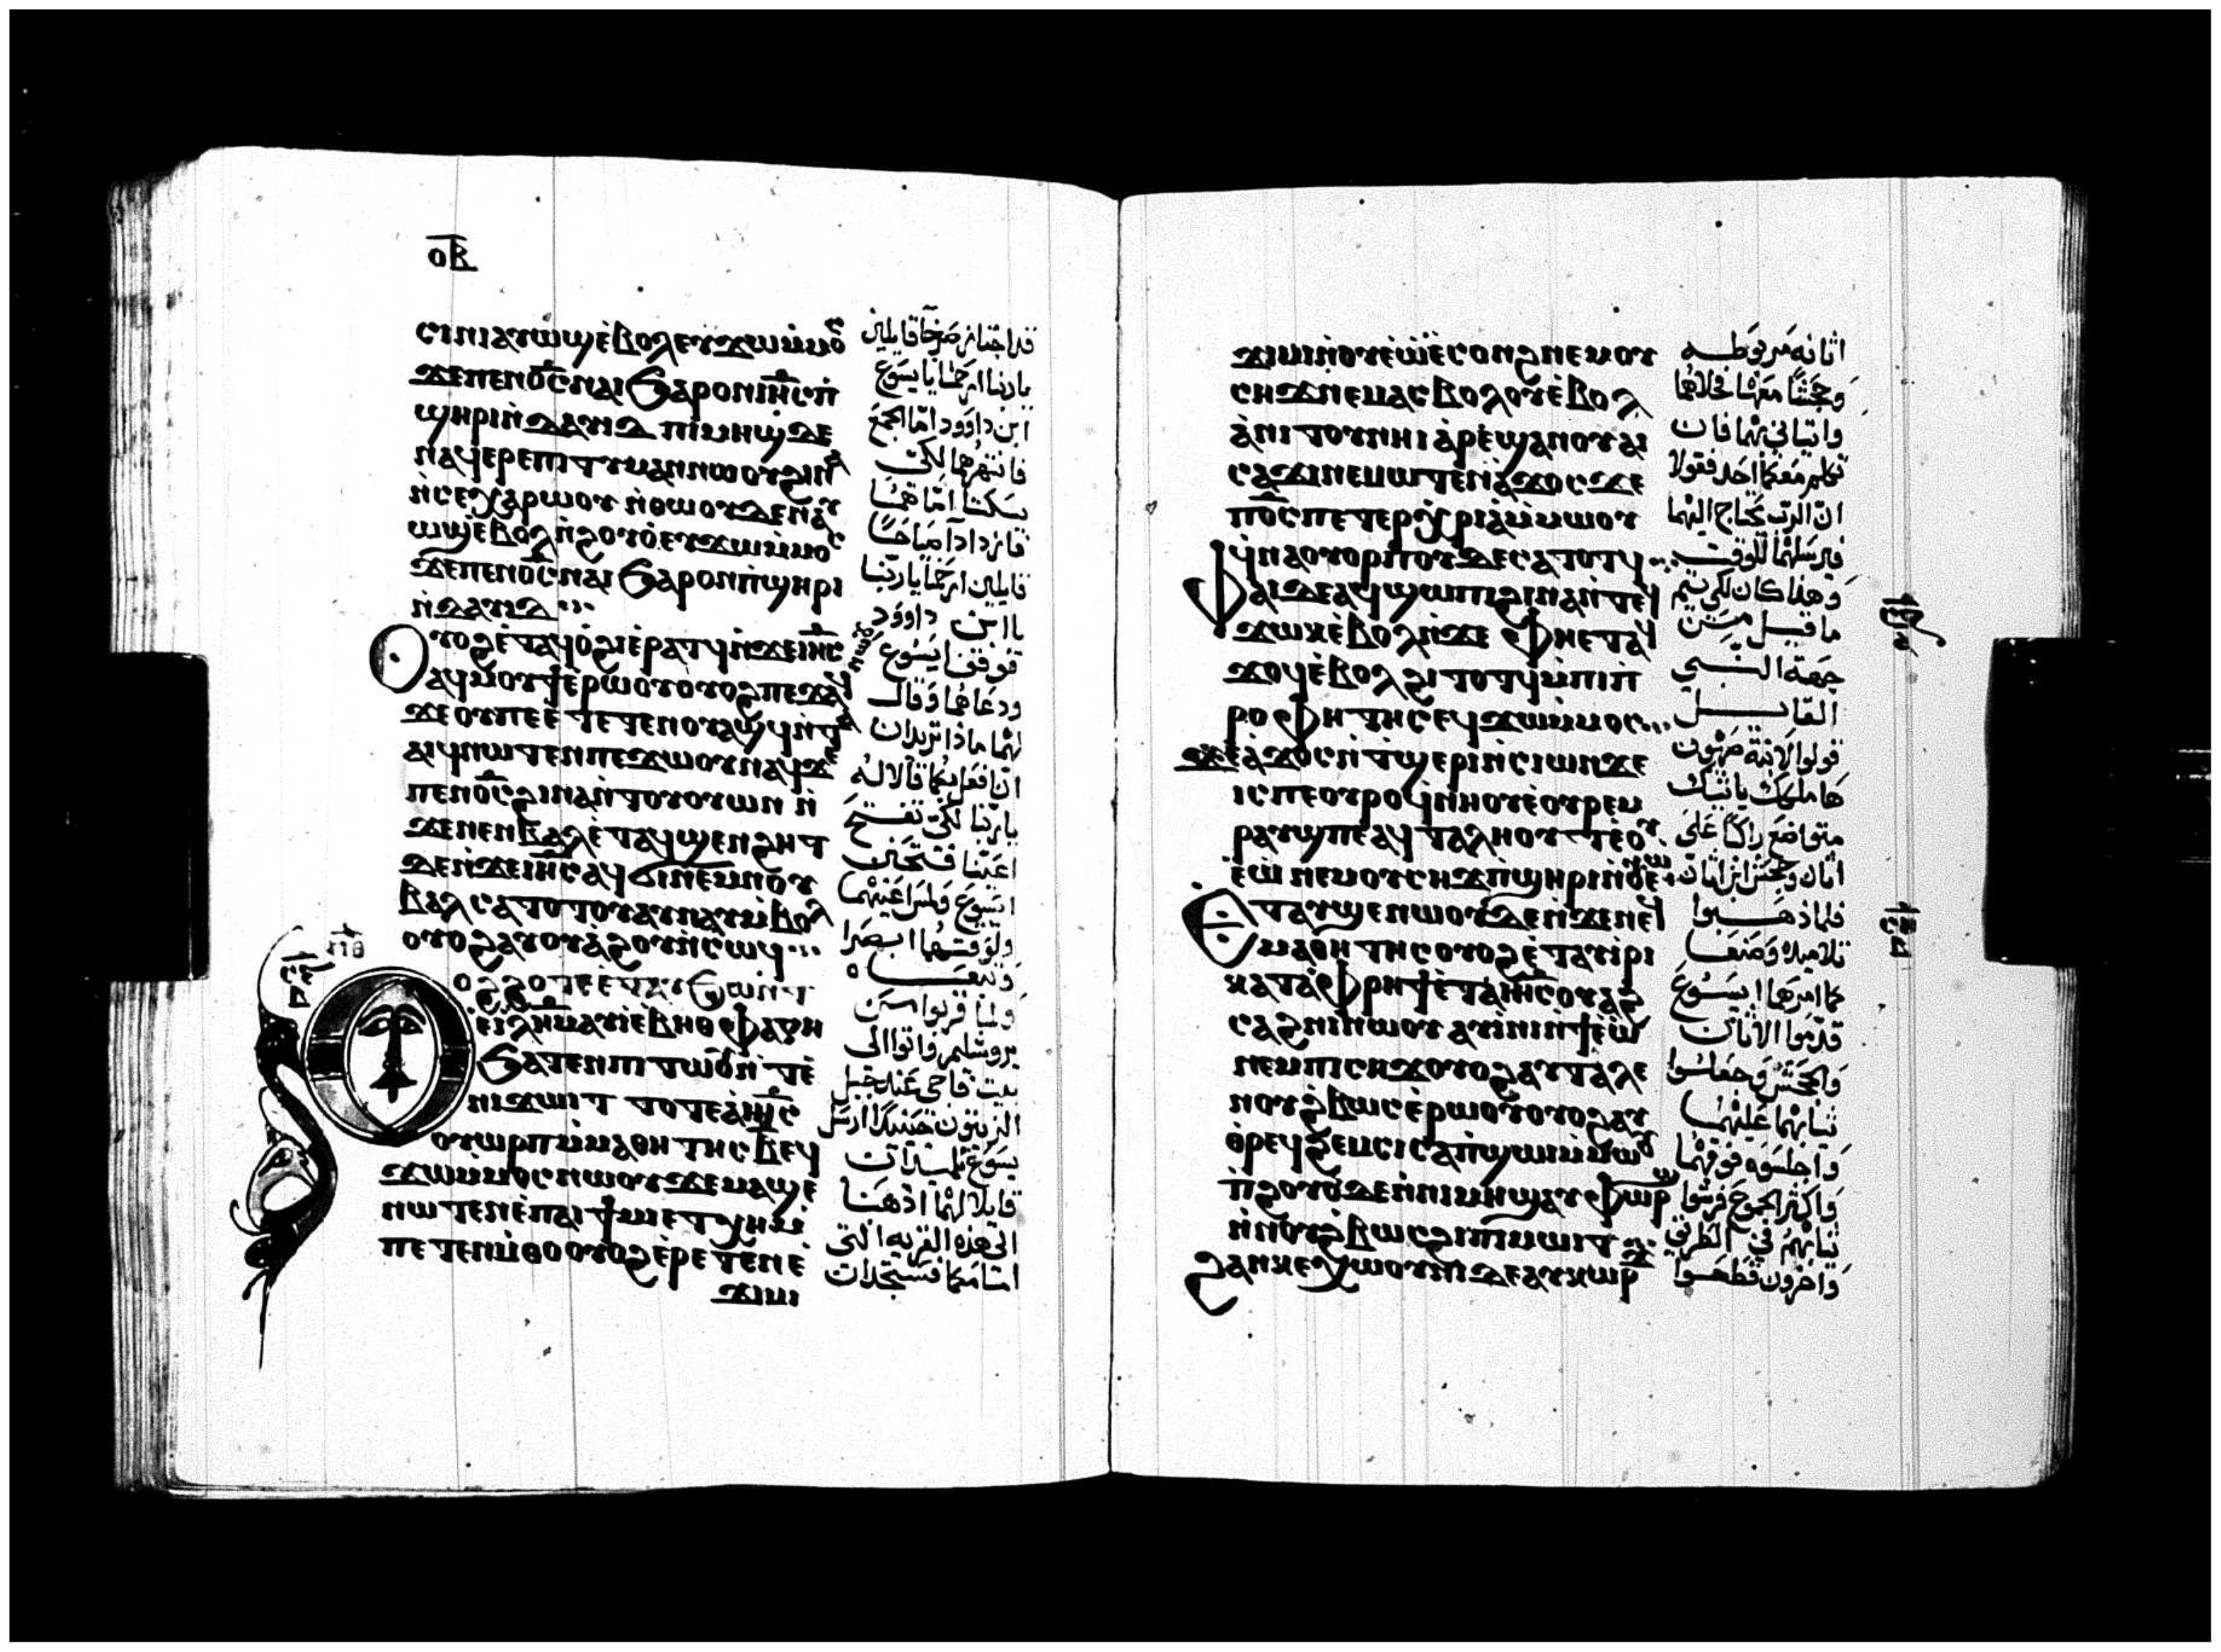 ⲟⲃ
ⲥⲓⲛⲓⲁⲩⲱϣⲉ̀ⲃⲟⲗⲉⲩϫⲱⲙ̀ⲙⲟⲥ
ϫⲉⲡⲉⲛⲟ̅ⲥ̅ⲛⲁⲓϧⲁⲣⲟⲛⲓⲏ̅ⲥ̅ⲡ̀
ϣⲏⲣⲓⲛ̀ⲇⲁⲩⲓⲇ ⲡⲓⲙⲏϣⲇⲉ
ⲛⲁϥⲉⲣⲉⲡⲓⲧⲓⲙⲁⲛⲛⲱⲟⲩϩⲓⲛⲁ
ⲛ̀ⲥⲉⲭⲁⲣⲱⲟⲩ ⲛ̀ⲑⲱⲟⲩⲇⲉⲛⲁⲩ
ⲱϣⲉ̀ⲃⲟⲗⲛ̀ϩⲟⲩⲟ̀ⲉⲩϫⲱⲙ̀ⲙⲟⲥ
ϫⲉⲡⲉⲛⲟ̅ⲥ̅ⲛⲁⲓϧⲁⲣⲟⲛⲡ̀ϣⲏⲣⲓ
ⲛ̀ⲇⲁⲩⲓⲇ
ⲟⲩⲟϩⲉ̀ⲧⲁϥⲟ̀ϩⲓⲉ̀ⲣⲁⲧϥⲛ̀ϫⲉⲓⲏ̅ⲥ̅
ⲁϥⲙⲟⲩϯⲉ̀ⲣⲱⲟⲩⲟⲩⲟϩⲡⲉϫⲁϥ
ϫⲉⲟⲩⲡⲉⲉ̀ⲧⲉⲧⲉⲛⲟⲩⲁϣϥⲛ̀ⲧⲁ
ⲁⲓϥⲛⲱⲧⲉⲛⲡⲉϫⲱⲟⲩⲛⲁϥϫⲉ
ⲡⲉⲛⲟ̅ⲥ̅ϩⲓⲛⲁⲛ̀ⲧⲟⲩⲟⲩⲱⲛ ⲛ̀
ϫⲉⲛⲉⲛⲃⲁⲗⲉ̀ⲧⲁϥϣⲉⲛϩⲏⲧ
ⲇⲉⲛ̀ϫⲉⲓⲏ̅ⲥ̅ⲁϥϭⲓⲛⲉⲙⲛⲟⲩ
ⲃⲁⲗ ⲥⲁⲧⲟⲧⲟⲩⲁⲩⲛⲁⲩⲙ̀ⲃⲟⲗ
ⲟⲩⲟϩⲁⲩⲟⲩⲁϩⲟⲩⲛ̀ⲥⲱϥ
ⲟϩϩⲟⲧⲉⲉ̀ⲧⲁⲩϧⲱⲛⲧ
ⲉⲓ̅ⲗ̅ⲏ̅ⲙ̅ⲁⲩⲓⲉ̀ⲃⲏⲑⲫⲁⲅⲏ
ϧⲁⲧⲉⲛⲡⲓⲧⲱⲟⲩⲛ̀ⲧⲉ̀
ⲛⲓϫⲱⲓⲧ ⲧⲟⲧⲉⲁ̀ⲓⲏ̅ⲥ̅
ⲟⲩⲱⲣⲡⲙ̀ⲙⲁⲑⲏⲧⲏⲥ ⲃ̅ ⲉϥ
ϫⲱⲙ̀ⲙⲟⲥⲛⲱⲟⲩϫⲉⲙⲁϣⲉ
ⲛⲱⲧⲉⲛⲉ̀ⲡⲁⲓϯⲙⲓⲉⲧⲭⲏⲙ̀
ⲡⲉⲧⲉⲛⲙ̀ⲑⲟⲟⲩⲟϩⲉ̀ⲣⲉⲧⲉⲛⲉ̀
ϫⲓⲙⲓ
قد اجتاز صرخا قايلين
يا ربنا ارحمنا يا يسوع
ابن داوود اما الجمع
فانتهرهما لكي
يسكتا اما هما
فازدادا صياحا
قايلين ارحمنا يا ربنا
يا ابن داوود
فوقف ايسوع
ودعاهما وقال
لهما ماذا تريدان
ان افعل بكما قالا له
يا ربنا لكي تفتح
اعيننا فتحنن
ايسوع ولمس اعينهما
ولوقتهما ابصرا
وتبعاه
ولما قربوا من
يروشليم واتوا الى
بيت فاجي عند جبل
الزيتون حينيذ ارسل
يسوع تلميذان
قايلا لهما اذهبا
الى هذه القريه التي
امامكما فستجدان
ϫⲓⲙⲓⲛ̀ⲟⲩⲉ̀ⲱ̀ⲉⲥⲟⲛϩⲛⲉⲙⲟⲩ
ⲥⲏϫⲛⲉⲙⲁⲥⲃⲟⲗⲟⲩⲉ̀ⲃⲟⲗ
ⲁ̀ⲛⲓⲧⲟⲩⲛⲏⲓ ⲁ̀ⲣⲉ̀ϣⲁⲛⲟⲩⲁⲓ
ⲥⲁϫⲓⲛⲉⲙⲱⲧⲉⲛⲁ̀ϫⲟⲥϫⲉ
ⲡⲟ̅ⲥ̅ⲡⲉⲧⲉⲣⲭⲣⲓⲁ̀ⲙ̀ⲙⲱⲟⲩ
ϥⲛⲁⲟⲩⲟⲣⲡⲟⲩⲇⲉⲥⲁⲧⲟⲧϥ
ⲫⲁⲓⲇⲉⲁϥϣⲱⲡⲓϩⲓⲛⲁⲛ̀ⲧⲉϥ
ϫⲱⲕⲉ̀ⲃⲟⲗⲛ̀ϫⲉ ⲫⲏⲉⲧⲁϥ
ϫⲟϥⲉ̀ⲃⲟⲗϩⲓⲧⲟⲧϥⲙ̀ⲡⲓⲡ̀
ⲣⲟⲫⲏⲧⲏⲥⲉϥϫⲱⲙ̀ⲙⲟⲥ
ϫⲉⲁ̀ϫⲟⲥⲛ̀ⲧ̀ϣⲉⲣⲓⲛ̀ⲥⲓⲱⲛϫⲉ
ⲓⲥⲡⲉⲟⲩⲣⲟϥⲛ̀ⲏⲟⲩⲉ̀ⲟⲩⲣⲉⲙ
ⲣⲁⲩϣⲡⲉⲁϥⲧⲁⲗⲏⲟⲩⲧⲉ̀ⲟⲩ
ⲉ̀ⲱ̀ ⲛⲉⲙⲟⲩⲥⲏϫⲡ̀ϣⲏⲣⲓⲛ̀ⲟⲩⲉ̀ⲱ̀
ⲉ̀ⲧⲁⲩϣⲉⲛⲱⲟⲩⲇⲉⲛ̀ϫⲉⲛⲉϥ
ⲙⲁⲑⲏⲧⲏⲥⲟⲩⲟϩⲉ̀ⲧⲁⲩⲓ̀ⲣⲓ
ⲕⲁⲧⲁ̀ⲫⲣⲏϯⲉ̀ⲧⲁⲓⲏ̅ⲥ̅ⲟⲩⲁϩ
ⲥⲁϩⲛⲓⲛⲱⲟⲩ ⲁⲩⲓ̀ⲛⲓⲛ̀ϯⲉ̀ⲱ̀
ⲛⲉⲙⲡⲓⲥⲏϫⲟⲩⲟϩⲁⲩⲧⲁⲗⲉ
ⲛⲟⲩϩ̀ⲃⲱⲥⲉ̀ⲣⲱⲟⲩⲟⲩⲟϩⲁⲩ
ⲑ̀ⲣⲉϥϩⲉⲙⲥⲓⲥⲁⲡ̀ϣⲱⲓⲙ̀ⲙⲱⲟⲩ
ⲡ̀ϩⲟⲩⲟ̀ⲇⲉⲛ̀ⲛⲓⲙⲏϣⲁⲩⲫⲱⲣϣ
ⲛ̀ⲛⲟⲩϩ̀ⲃⲱⲥϩⲓⲡⲓⲙⲱⲓⲧ
ϩⲁⲛⲕⲉⲭⲱⲟⲩⲛⲓⲇⲉⲁⲩⲕⲱⲣϫ
اتانه مربوطه
وجحشا معها فحلاهما
واتياني بهما فان
تكلم معكما احد فقولا
ان الرب يحتاج اليهما
فيرسلهما للوقت
وهذا كان لكي يتم
ما قيل من
جهة النبي
القايل
قولوا لابنة صهيون
هاملكك ياتيك
متواضع راكبا على
اتان وجحش ابن اتان
فلما ذهبوا
تلاميذه وصنعا
كما امرهما ايسوع
قدموا الاتان
والجحش وجعلوا
ثيابهما عليهما
واجلسوه فوقهما
واكثر الجموع فرشوا
ثيابهم في الطريق
واخرون قطعوا